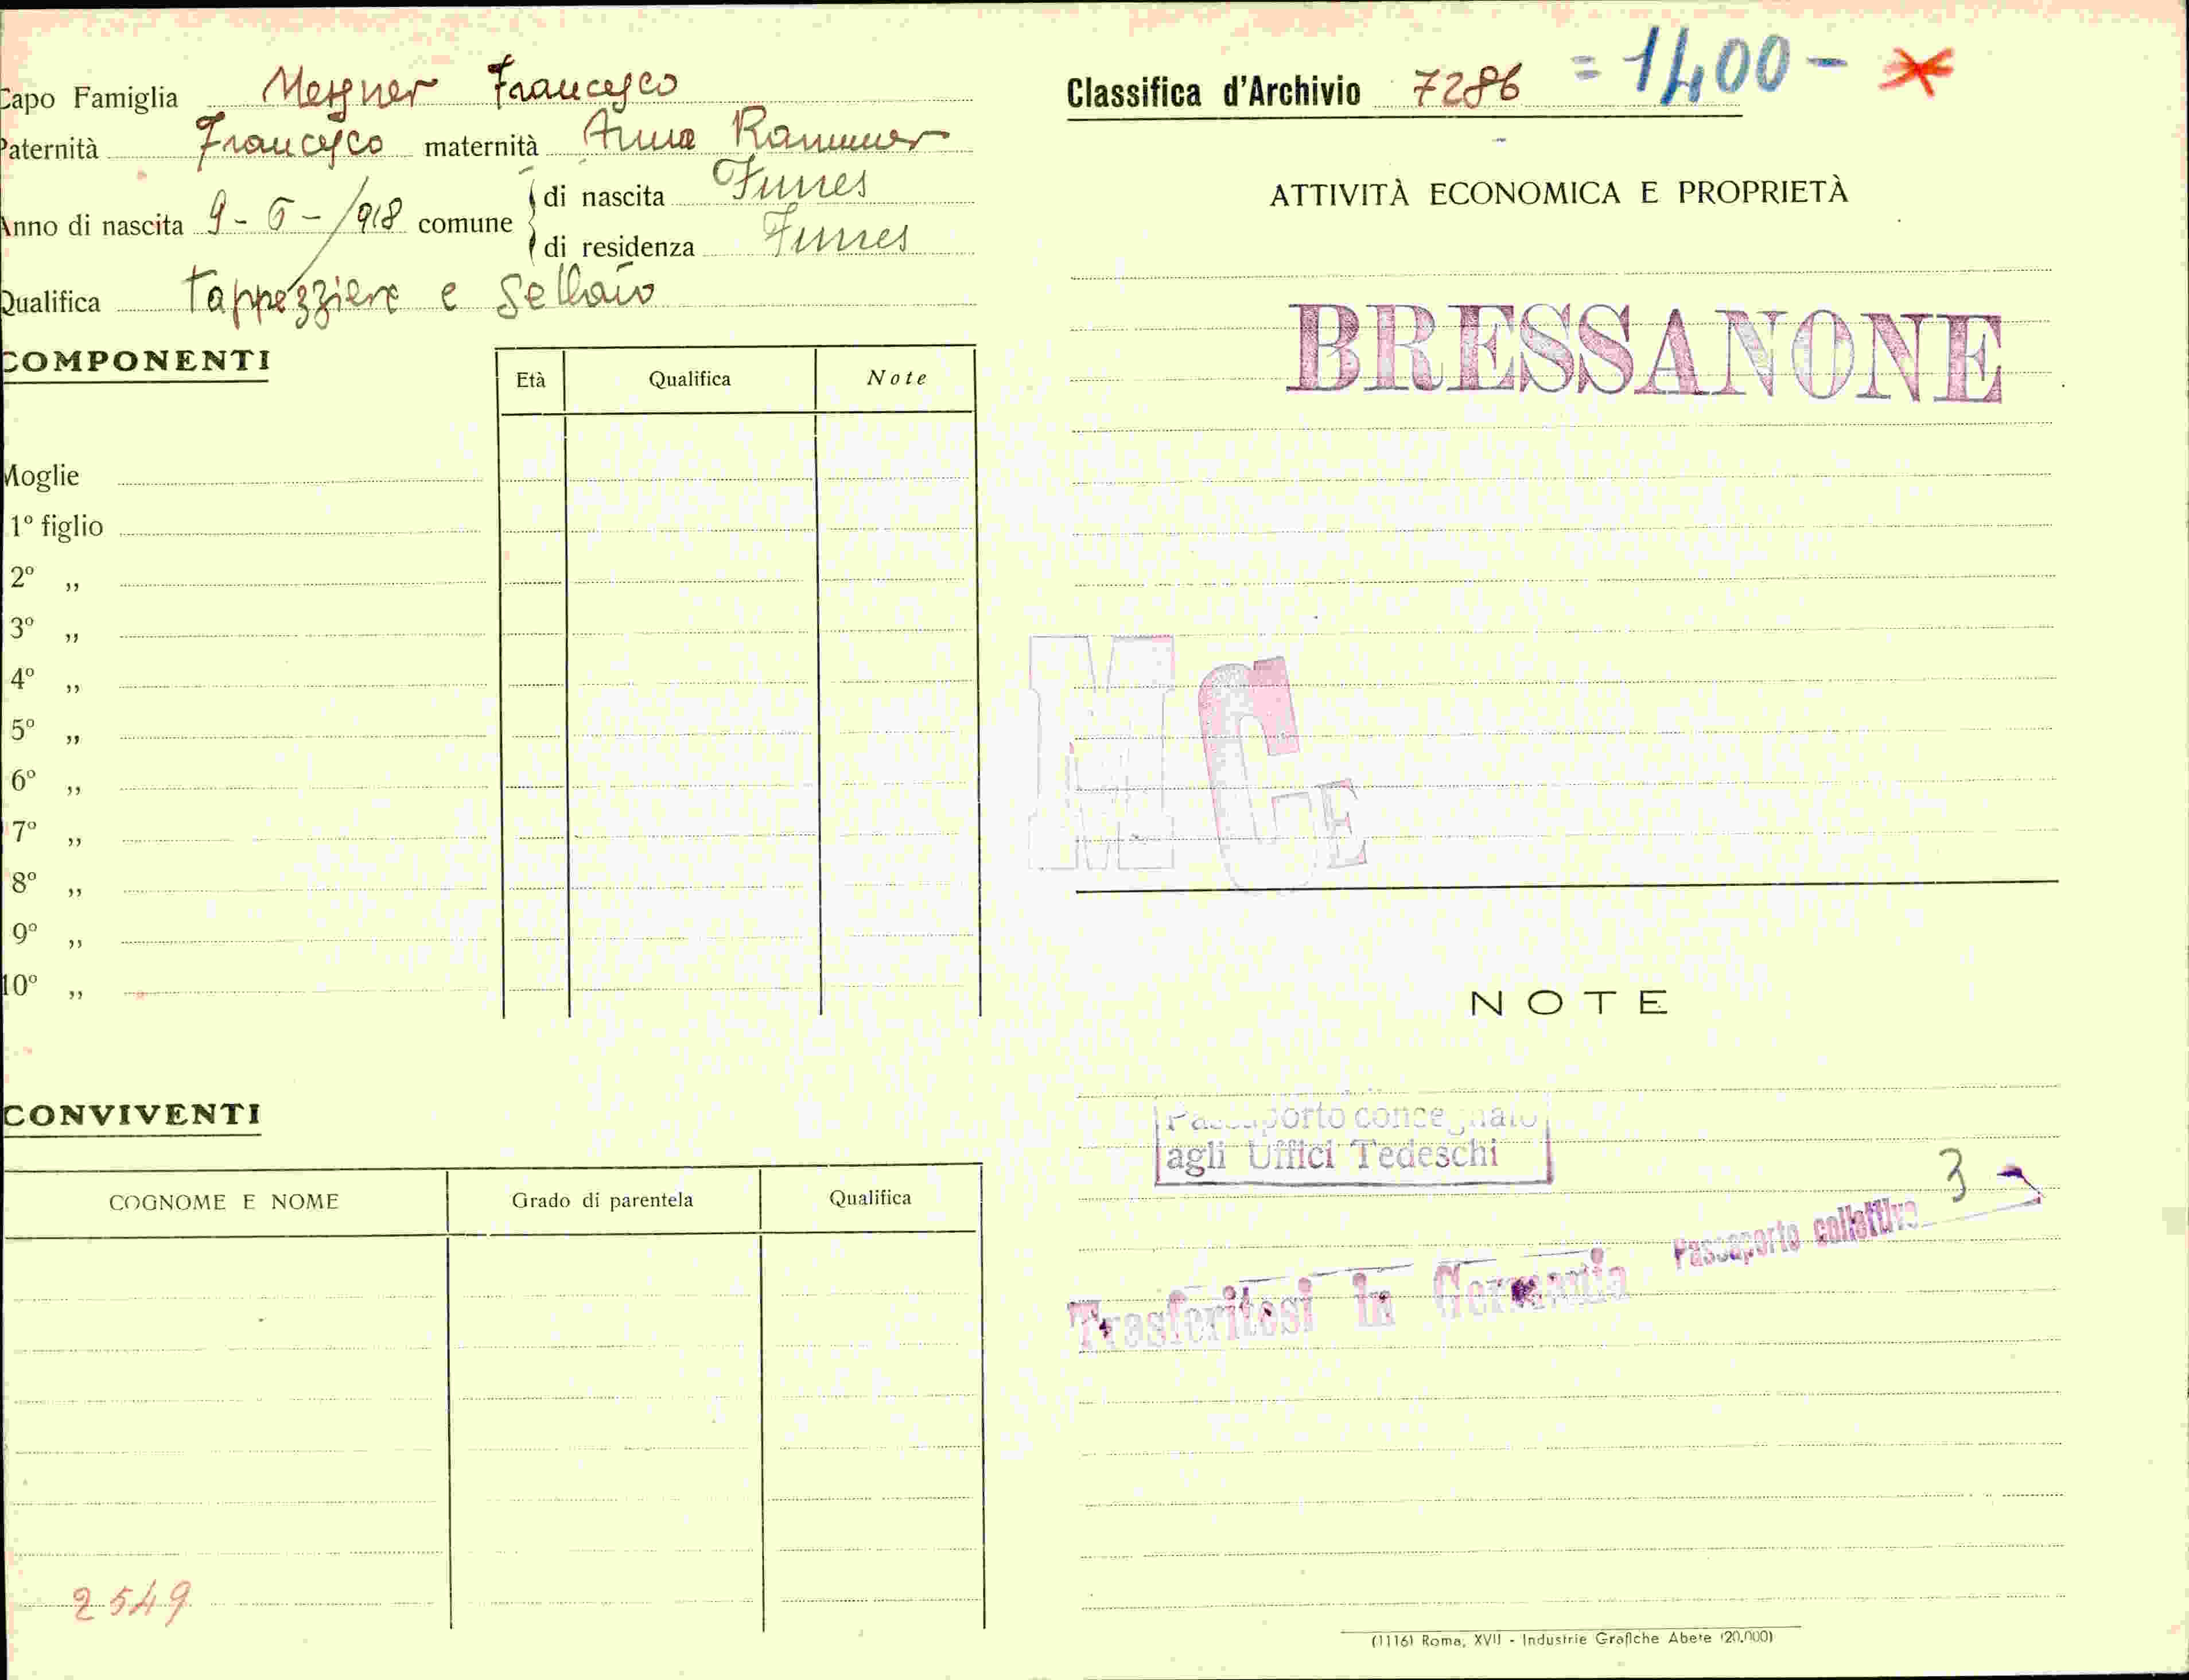 Capo Famiglia Mesner Francesco
Paternità Francesco maternità Anna Rammer
Anno di nascita 9-6-/918 comune di nascita Funes
di residenza Funes
Qualifica Tappezziere e Sellaio
COMPONENTI
Età Qualifica Note
Moglie
1º figlio
2º „
3º „
4º „
5º „
6º „
7º „
8º „
9º „
10º „
CONVIVENTI
COGNOME E NOME Grado di parentela Qualifica
2549
Classifica d'Archivio 7286 = 1400 -
ATTIVITÀ ECONOMICA E PROPRIETÀ
BRESSANONE
M C E
NOTE
Passaporto concegnato
agli Uffici Tedeschi
Passaporto collettivo 3
Trasferitosi in Germania
(11161 Roma, XVII - Industrie Grafiche Abete (20.000)